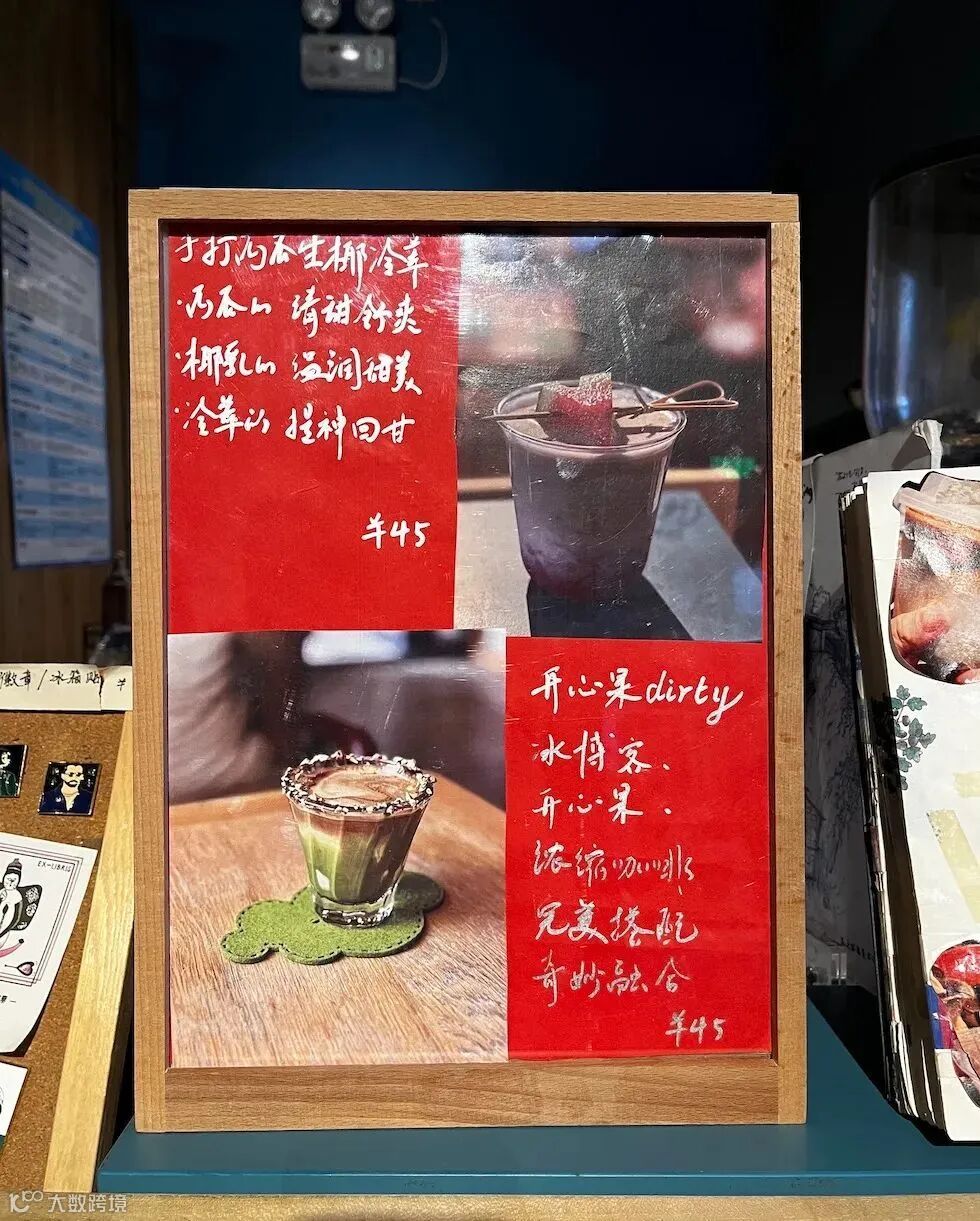 手打西瓜生椰冷萃
·西瓜的 清甜舒爽
·椰乳的 温润甜美
·冷萃的 提神回甘
¥45
开心果dirty
冰博客、
开心果、
浓缩咖啡
完美搭配
奇妙融合
¥45
徽章/冰箱贴 ¥
EX-LIBRIS
大数跨境